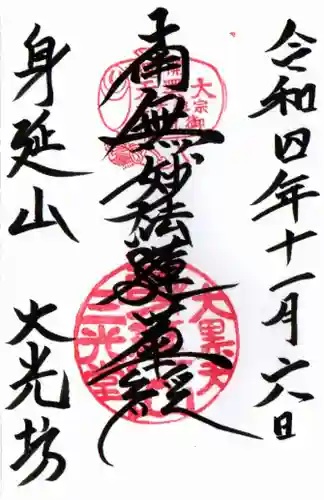 令和四年十一月六日
南無妙法蓮華経
身延山
大光坊
大黒天
三光堂